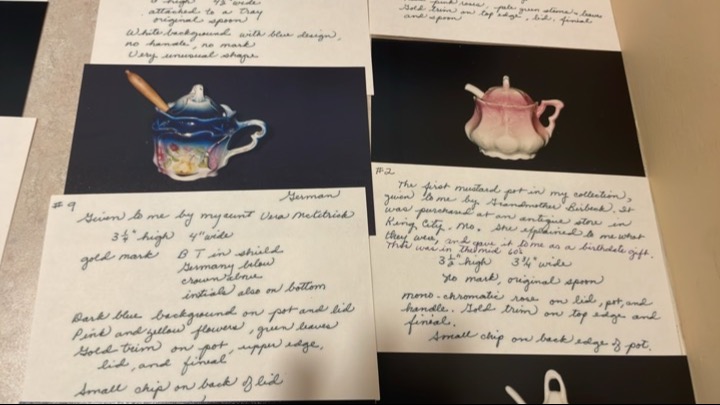 6" high 4½" wide
attached to a tray
original spoon
White background with blue design,
no handle, no mark
Very unusual shape
pink roses, pale green stems & leaves
Gold trim on top edge, lid, finial
and spoon
#9 German
Given to me by my aunt Vera
3½" high 4" wide
gold mark B T in shield
Germany below
crown above
initials also on bottom
Dark blue background on pot and lid
Pink and yellow flowers, green leaves
Gold trim on pot, upper edge,
lid, and finial
Small chip on back of lid
#2
The first mustard pot in my collection,
given to me by Grandmother Birbeck. It
was purchased at an antique store in
King City, Mo. She explained to me what
they were, and gave it to me as a birthdate gift.
This was in the mid 60s
3½" high 3¾" wide
No mark, original spoon
mono-chromatic rose on lid, pot, and
handle. Gold trim on top edge and
finial.
Small chip on back edge of pot.